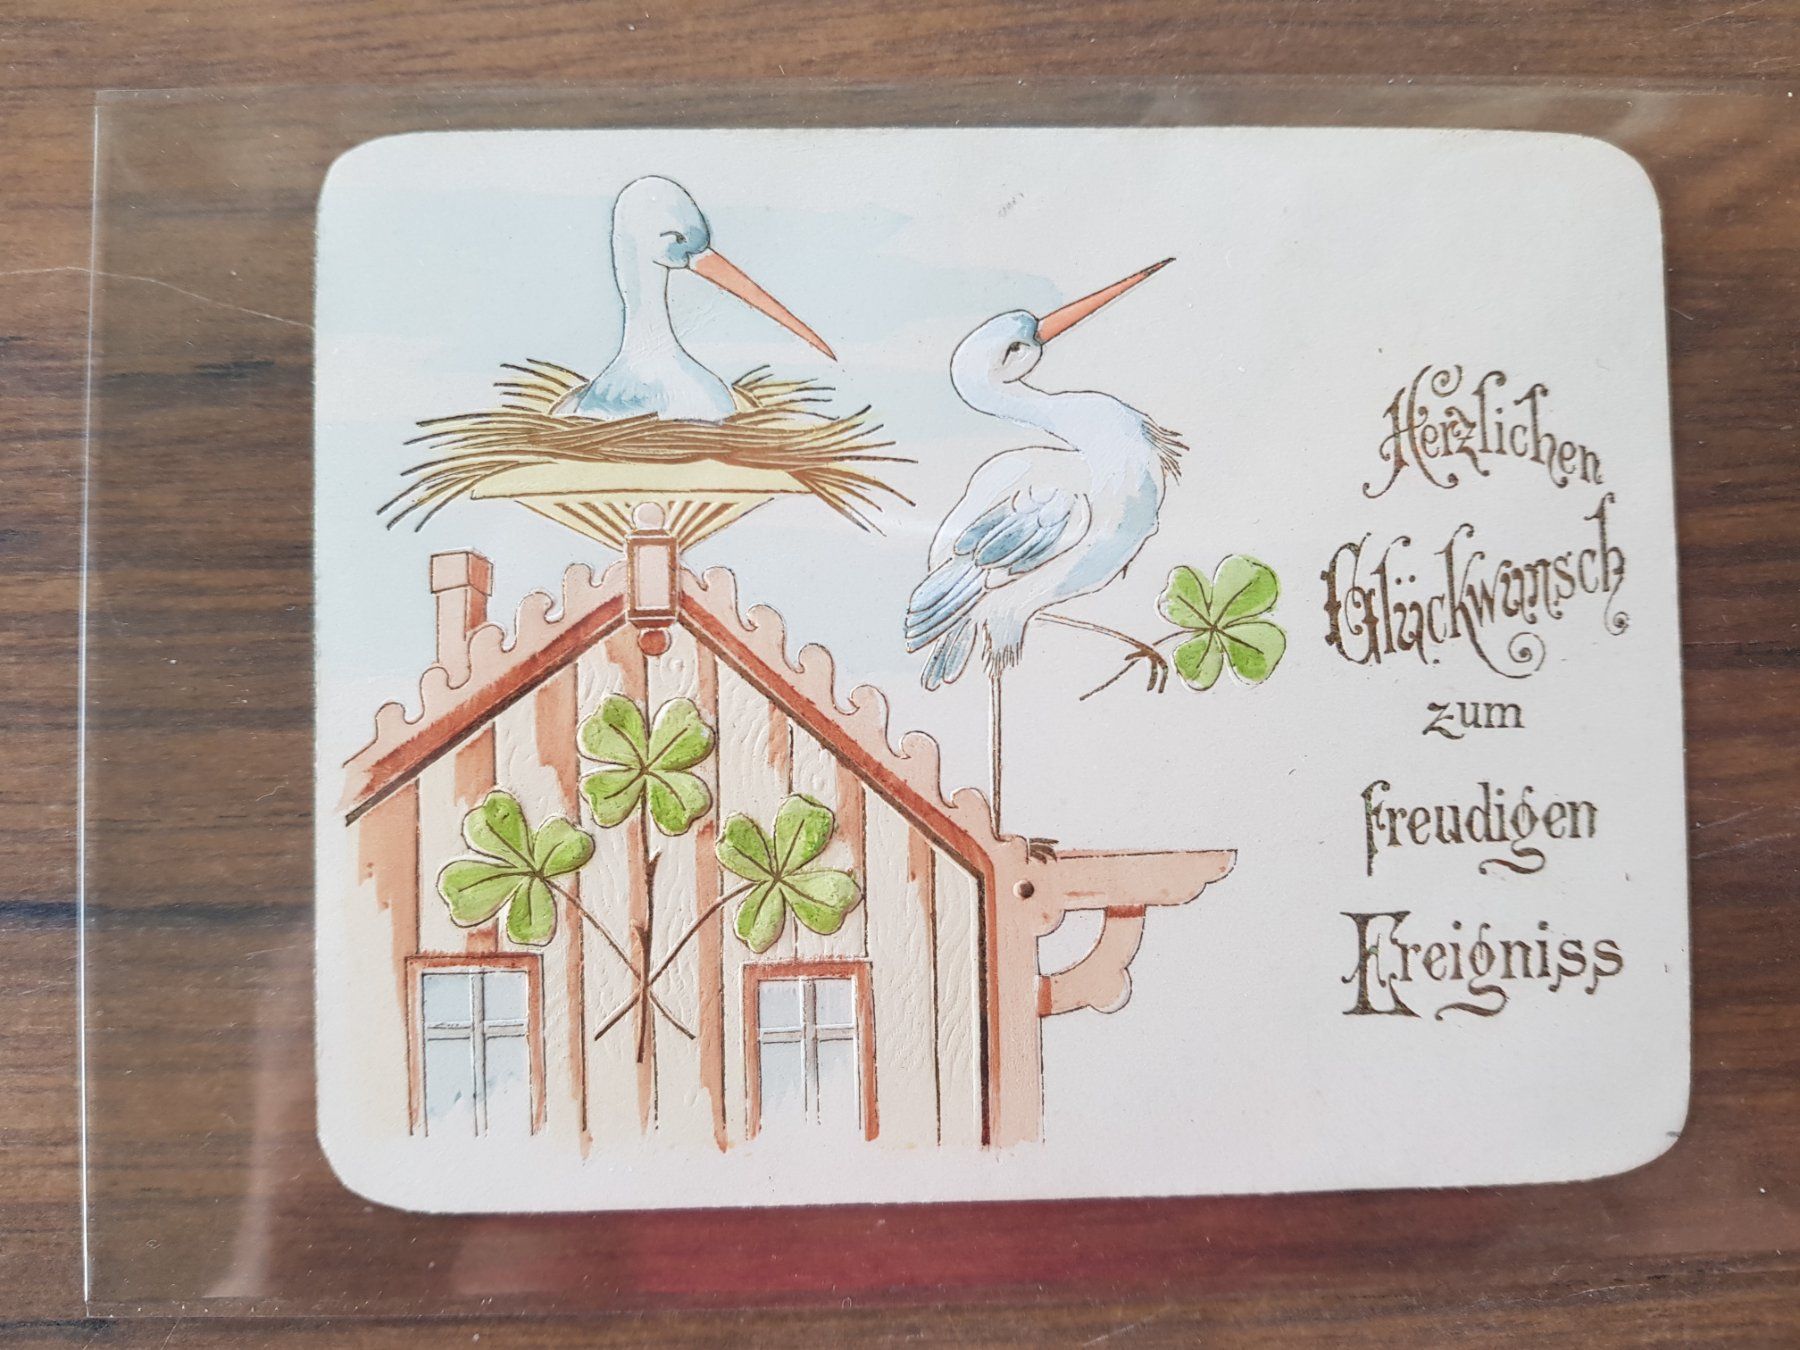 Herzlichen
Glückwunsch
zum
freudigen
Ereigniss